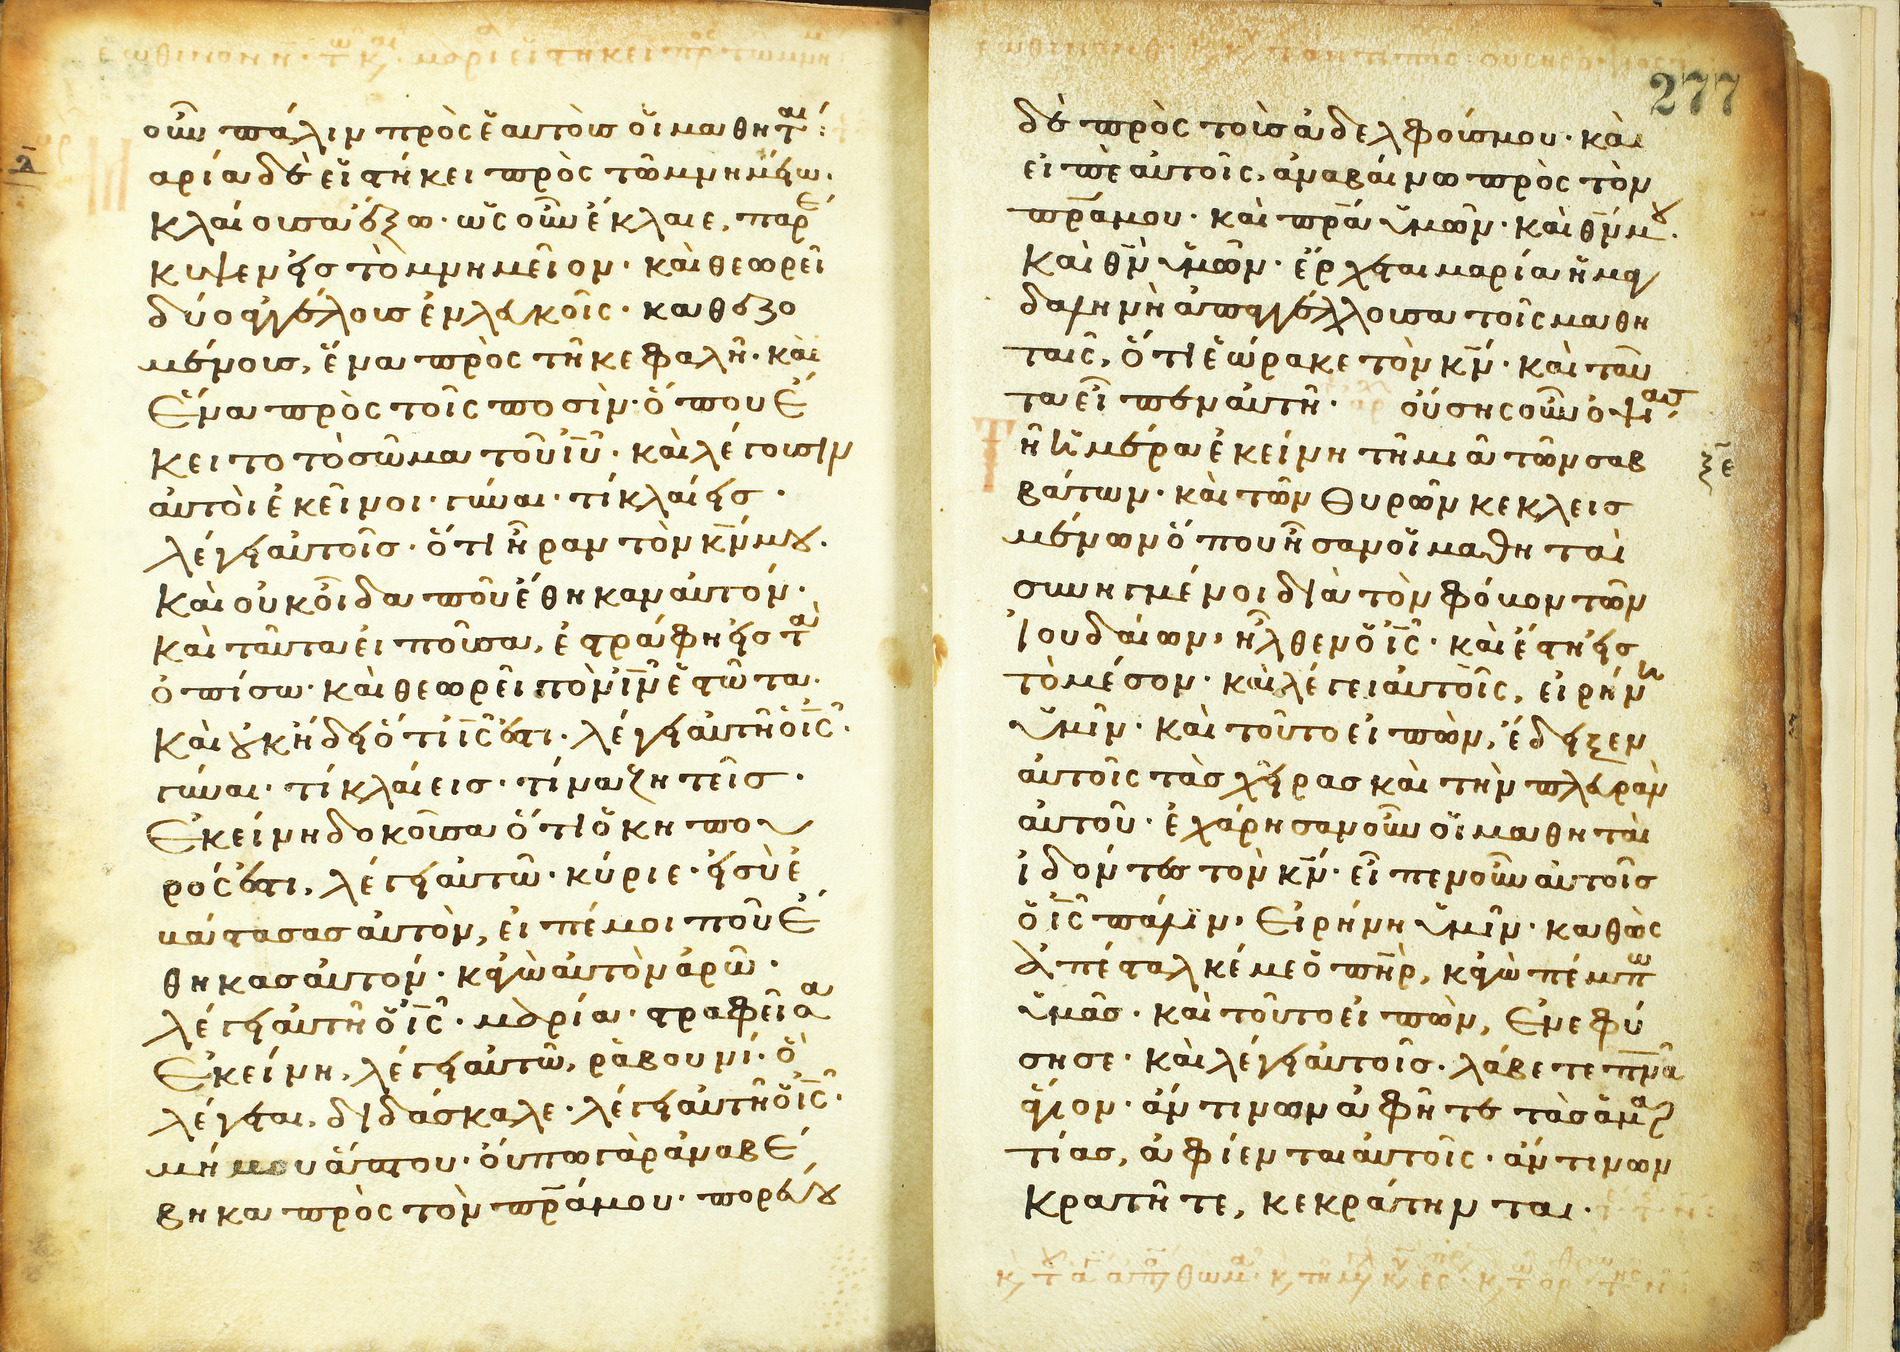 οὖν πάλιν πρὸς ἑαυτοὺς οἱ μαθητ(αί):
αρία δὲ εἱστήκει πρὸς τῶ μνημείω.
κλαίουσα ἔξω· ὡς οὖν ἔκλαιε, παρέ
κυψεν εἰς τὸ μνημεῖον· καὶ θεωρεῖ
δύο ἀγγέλους ἐν λευκοῖς· καθεζο
μένους, ἕνα πρὸς τῆ κεφαλῆ· καὶ
ἕνα πρὸς τοῖς ποσὶν· ὅπου ἔ
κειτο τὸ σῶμα τοῦ ἰῦ· καὶ λέγουσιν
αὐτὸι ἐκεῖνοι· γύναι· τί κλαίεις·
λέγει αὐτοῖς· ὅτι ἦραν τὸν κν̄ μου.
καὶ οὐκ οἶδα ποῦ ἔθηκαν αὐτόν·
καὶ ταῦτα εἰποῦσα, ἐστράφη εἰς τὰ
ὀπίσω· καὶ θεωρεῖ τὸν ἰν̄ ἑστῶτα.
καὶ οὐκ ἤδει ὅτι ἰς̄ ἐστι· λέγει αὐτῆ ὁ ἰς̄·
γύναι· τί κλαίεις· τίνα ζητεῖς·
ἐκείνη δοκοῦσα ὅτι ὁ κηπου
ρός ἐστι, λέγει αὐτῶ· κύριε· εἰ σὺ ἐ
βάστασας αὐτὸν, εἰπέ μοι ποῦ ἔ
θηκας αὐτόν· κἀγὼ αὐτὸν ἀρῶ·
λέγει αὐτῆ ὁ ἰς̄· μαρία· στραφεῖσα
ἐκείνη, λέγει αὐτῶ, ῥαβουνί· ὃ
λέγεται, διδάσκαλε· λέγει αὐτῆ ὁ ἰς̄·
μή μου ἅπτου· οὔπω γὰρ ἀναβέ
βηκα πρὸς τὸν πρ̄α μου· πορεύου
277
δὲ πρὸς τοὺς ἀδελφούς μου· καὶ
εἰπὲ αὐτοῖς, ἀναβαίνω πρὸς τὸν
πρ̄α μου· καὶ πρ̄α ὑμῶν· καὶ θν̄ μου.
καὶ θν̄ ὑμῶν· ἔρχεται μαρία ἡ μαγ
δαληνὴ ἀπαγγέλλουσα τοῖς μαθη
ταῖς, ὅτι ἑώρακε τὸν κν̄· καὶ ταῦ
τα εἶπεν αὐτῆ· οὔσης οὖν ὀψίας
τῆ ἡμέρα ἐκείνη τῆ μιᾶ τῶν σαβ
βάτων· καὶ τῶν θυρῶν κεκλεισ
μένων ὅπου ἦσαν οἱ μαθηταὶ
συνηγμένοι διὰ τὸν φόβον τῶν
ἰουδαίων, ἦλθεν ὁ ἰς̄· καὶ ἔστη εἰς
τὸ μέσον· καὶ λέγει αὐτοῖς, εἰρήνη
ὑμῖν· καὶ τοῦτο εἰπὼν, ἔδειξεν
αὐτοῖς τὰς χεῖρας καὶ τὴν πλευρὰν
αὐτοῦ· ἐχάρησαν οὖν οἱ μαθηταὶ
ἰδόντες τὸν κν̄· εἶπεν οὖν αὐτοῖς
ὁ ἰς̄ πάλιν, εἰρήνη ὑμῖν· καθὼς
ἀπέσταλκέ με ὁ πηρ̄, κἀγὼ πέμπω
ὑμᾶς· καὶ τοῦτο εἰπὼν, ἐνεφύ
σησε· καὶ λέγει αὐτοῖς· λάβετε πν̄α
ἅγιον· ἄν τινων ἀφῆτε τὰς ἁμαρ
τίας, ἀφίενται αὐτοῖς· ἄν τινων
κρατῆτε, κεκράτηνται·